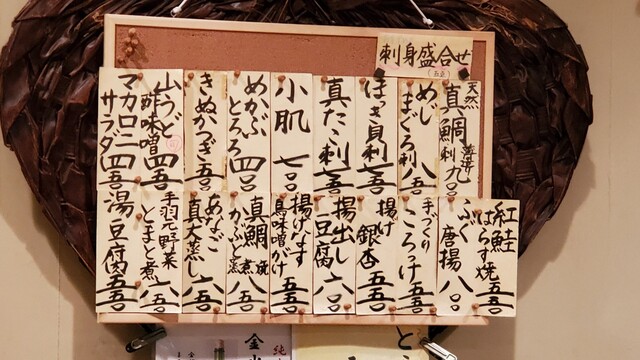 刺身盛合せ
(五点)
天然
真鯛刺 九〇
めじ
まぐろ刺 八五
ほっき貝刺 七五
真たこ刺 七五
小肌 七〇
めかぶ
とろろ 四〇
きぬかつぎ 五五
山うど
酢味噌 四五
マカロニ
サラダ 四五
紅鮭
はらす焼 五五
ふぐ
唐揚 八〇
手づくり
ころっけ 五五
揚げ
銀杏 五五
揚出し
豆腐 六〇
揚げなす
鳥味噌がけ 五五
真鯛
かぶと 焼 煮 八五
あなご
真丈蒸し 六五
手羽元野菜
とまと煮 六五
湯豆腐 五五